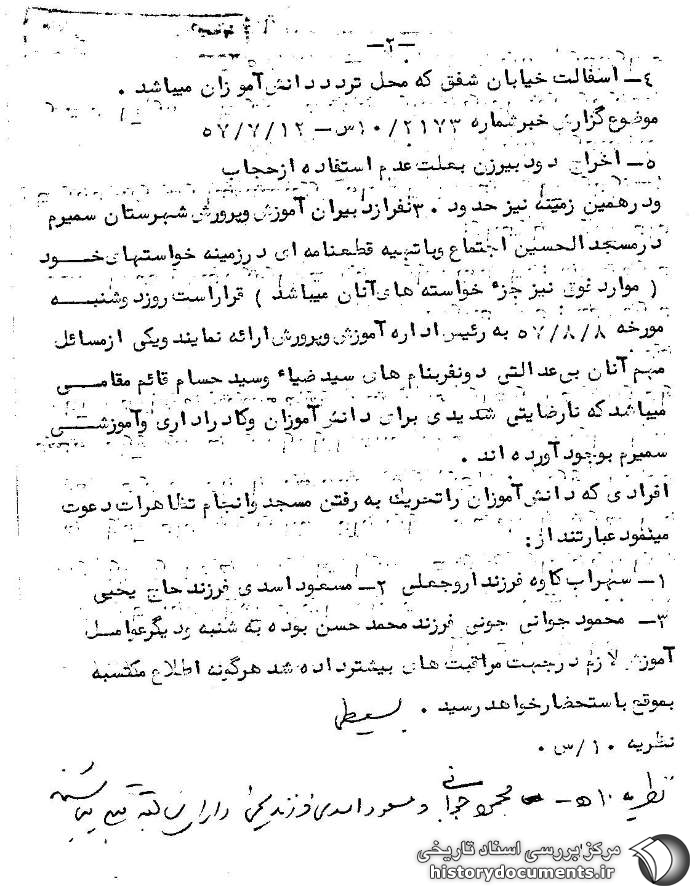 -۲-
۴- اسفالت خیابان شفق که محل تردد دانش آموزان میباشد .
موضوع گزارش خبر شماره ۱۰/۲۱۷۳س- ۵۷/۷/۱۲
۵- اخراج دو دبیرزن بعلت عدم استفاده از حجاب
ودرهمین زمینه نیز حدود ۳۰نفرازدبیران آموزش وپرورش شهرستان سمیرم
درمسجد الحسین اجتماع وباتهیه قطعنامه ای درزمینه خواستهای خود
( موارد فوق نیز جزء خواسته های آنان میباشد ) قراراست روزدوشنبه
مورخه ۵۷/۸/۸ به رئیس اداره آموزش وپرورش ارائه نمایند ویکی ازمسائل
مهم آنان بی عدالتی دونفربنام های سید ضیاء وسید حسام قائم مقامی
میباشد که نارضایتی شدیدی برای دانش آموزان وکادراداری وآموزشی
سمیرم بوجود آورده اند .
افرادی که دانش آموزان راتحریک به رفتن مسجد وانجام تظاهرات دعوت
مینمود عبارتند از:
۱- سهراب کاوه فرزند اروجعلی ۲- مسعود اسدی فرزند حاج یحیی
۳- محمود جوانی جونی فرزند محمد حسن بوده به شنبه ودیگرعوامل
آموزش لازم درجهت مراقبت های بیشترداده شد هرگونه اطلاع مکتسبه
بموقع باستحضارخواهد رسید .
نظریه ۱۰/س .
نظریه ۱۰ ه- محمود جوانی و مسعود اسدی فرزند یحیی دارای سابقه
مرکز بررسی اسناد تاریخی
historydocuments.ir